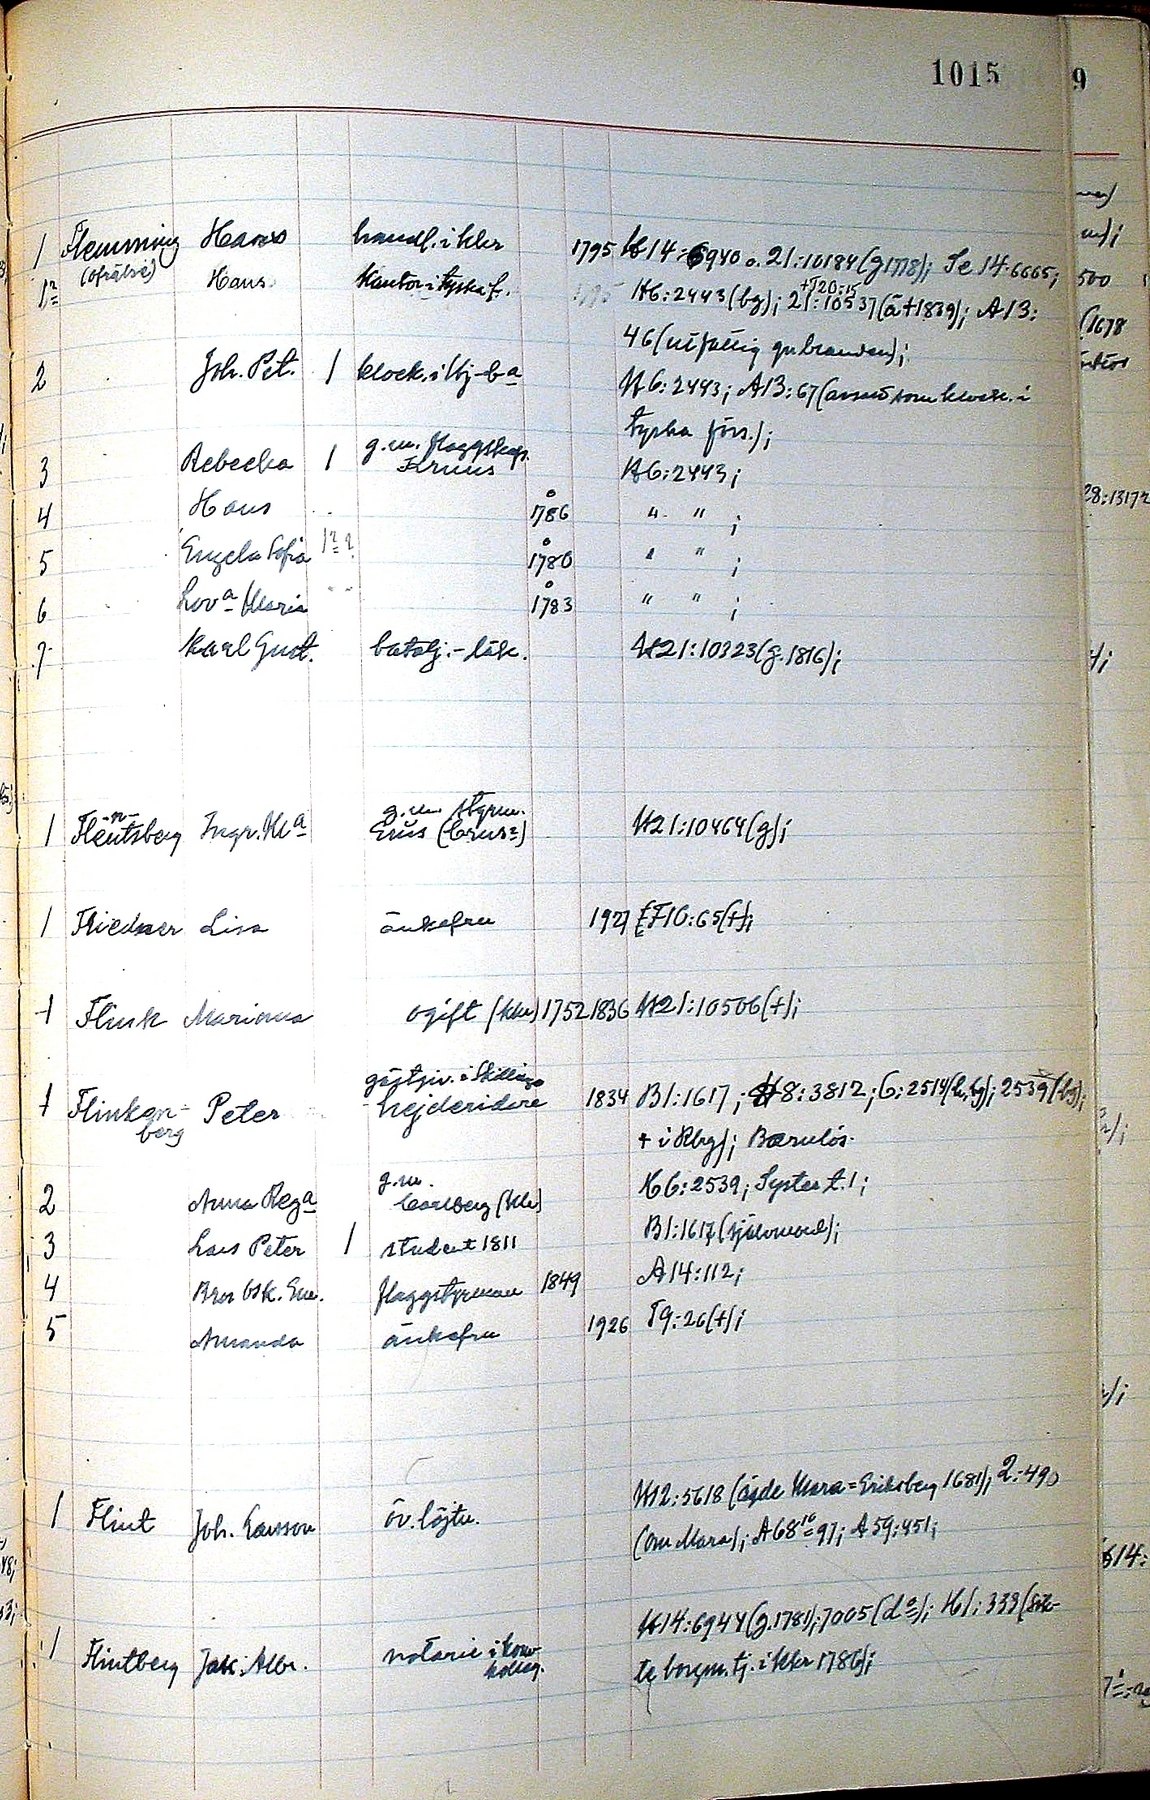 1015
9
1 Flemming Hans handl. i kkr 1795 H14:6940 o. 21:10184 (g 1778); Se 14:6665;
(ofrälse)
1a Hans kantor i tyska f. H6:2443 (bg); 21:10537 (ä +1839); A13:
+T20:15
46 (utfattig gn branden);
2 Joh. Pet. 1 klock. i Hj-ba H6:2443; A13:67 (ansed som klock. i
tyska förs.);
3 Rebecka 1 g.m. flaggskep. Kruus H6:2443;
4 Hans 1786 " " ;
5 Engela Sofia 1a? 1780 " " ;
6 Lova Maria 1783 " " ;
7 Karl Gust. batalj.-läk. H21:10323 (g. 1816);
-n-
1 Fleutsberg Ingr. Ma g.m. styrm. H21:10464 (g);
1 Fliedner Lisa änkefru 1927 EF10:65 (+);
1 Flink Mariana ogift (kkr) 1752 1836 H21:10506 (+);
1 Flinken-berg Peter gästgiv. i Skillinge hejderidare 1834 B1:1617; H8:3812; 6:2514 (h, bg); 2539 (bg);
+ i Rbg); Barnlös.
2 Anna Rega g.m. Carlberg (kkr) H6:2539; Syster t. 1;
3 Lars Peter 1 student 1811 B1:1617 (självmord);
4 Bror Osk. Em. flaggstyrman 1849 A14:112;
5 Amanda änkefru 1926 T9:26 (+);
1 Flint Joh. Larsson öv. löjtn. H12:5618 (ägde Mara = Eriksberg 1681); 2:490
(om Mara); A68:10=97; A59:451;
1 Flintberg Jak. Albr. notarie i kom-kolleg. H14:6944 (g. 1781); 7005 (do); H1:333 (sök-
te borgm. tj. i kkr 1786);